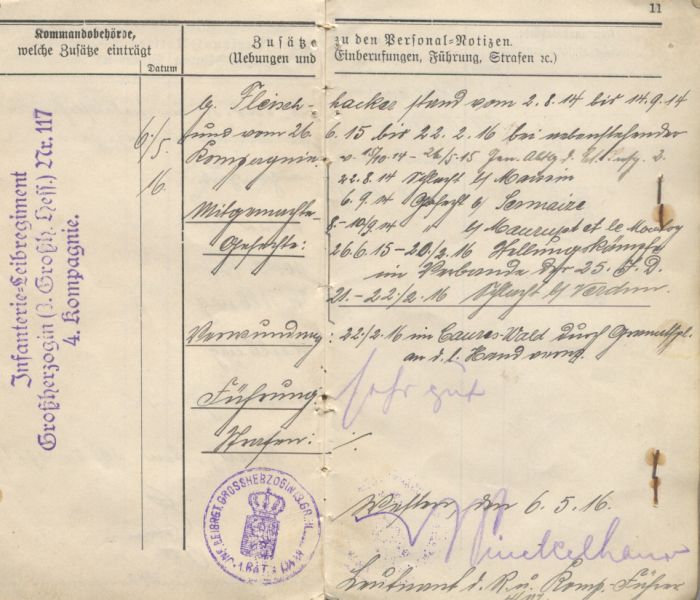 11
Kommandobehörde,
welche Zusätze einträgt
Datum
Zusätze zu den Personal-Notizen.
(Uebungen und Einberufungen, Führung, Strafen ꝛc.)
Infanterie-Leibregiment
Großherzogin (3. Großh. Hess.) Nr. 117
4. Kompagnie.
6./5.
16.
G. Fleischhacker stand vom 2.8.14 bis 14.9.14
und vom 26.6.15 bis 22.2.16 bei nebenstehender
Kompagnie.
v. 15/10 14 - 26/5 15
22.8.14 Schlacht b/ Maissin
Mitgemachte 6.9.14 Gefecht b/ Sermaize
8.-10/9.14 " b/ Maurupt et le Montoy
Gefechte: 26.6.15-20./2.16 Stellungskämpfe
im Verbande der 25. I.D.
21.-22./2.16 Schlacht b/ Verdun.
Verwundung: 22./2.16 im Caures-Wald durch Granatspl.
an d. l. Hand verw.
Führung: sehr gut
Strafen: ./.
den 6.5.16.
Leutnant d. R. u. Komp.-Führer
INF. LEIBRGT. GROSSHERZOGIN (3. GR. H.